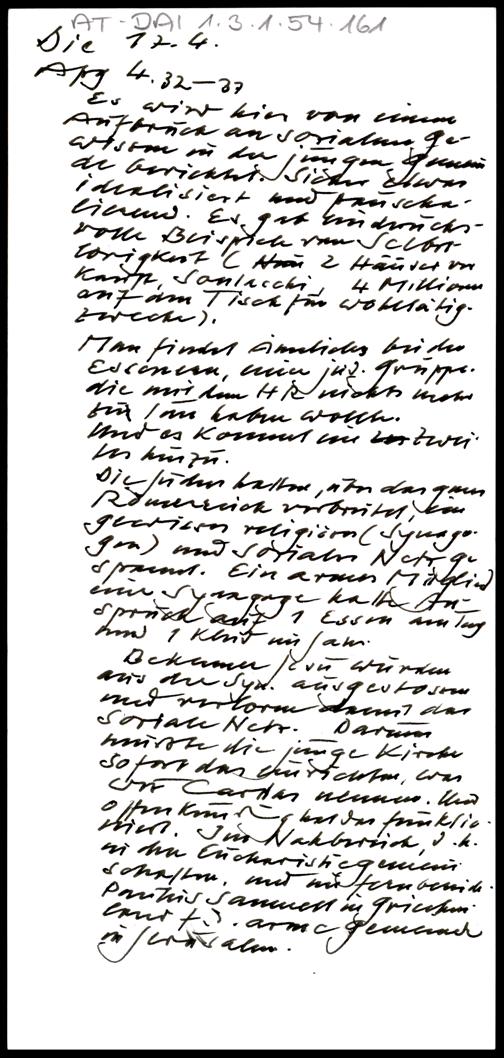 AT-DAI 1.3.1.54.161
Die 17.4.
Apg 4.32-37
Es wird hier von einem
Aufbruch an sozialem Ge-
wissen in der jungen Gemein
de berichtet. Sicher etwas
idealisiert und pauscha-
lierend. Es gab eindrucks-
volle Beispiele von Selbst-
losigkeit ( 2 Häuser ver
kauft, 4 Millionen
auf den Tisch für wohltätig.
zwecke).
Man findet ähnliches bei den
Essenern, einer jüd. Gruppe.
die mit dem HR nichts mehr
zu tun haben wollte.
Und es kommt ein zwei
tes hinzu.
Die Juden hatten, über das ganze
Römerreich verbreitet, ein
religiöses (Synago-
gen) und soziales Netz ge
spannt. Ein armes Mitglied
einer Synagoge hatte An-
spruch auf 1 Essen am Tag
und 1 Kleid im Jahr.
Bekenner Jesu wurden
aus der Syn. ausgestossen
und verloren damit das
soziale Netz. Darum
musste die junge Kirche
sofort das einrichten, was
wir Caritas nennen. Und
offenkundig hat das funktio-
niert. Im Nahbereich, d.h.
in den Eucharistiegemein
schaften, und im Fernbereich.
Paulus sammelt in Griechen
land f. d. arme Gemeinde
in Jerusalem.